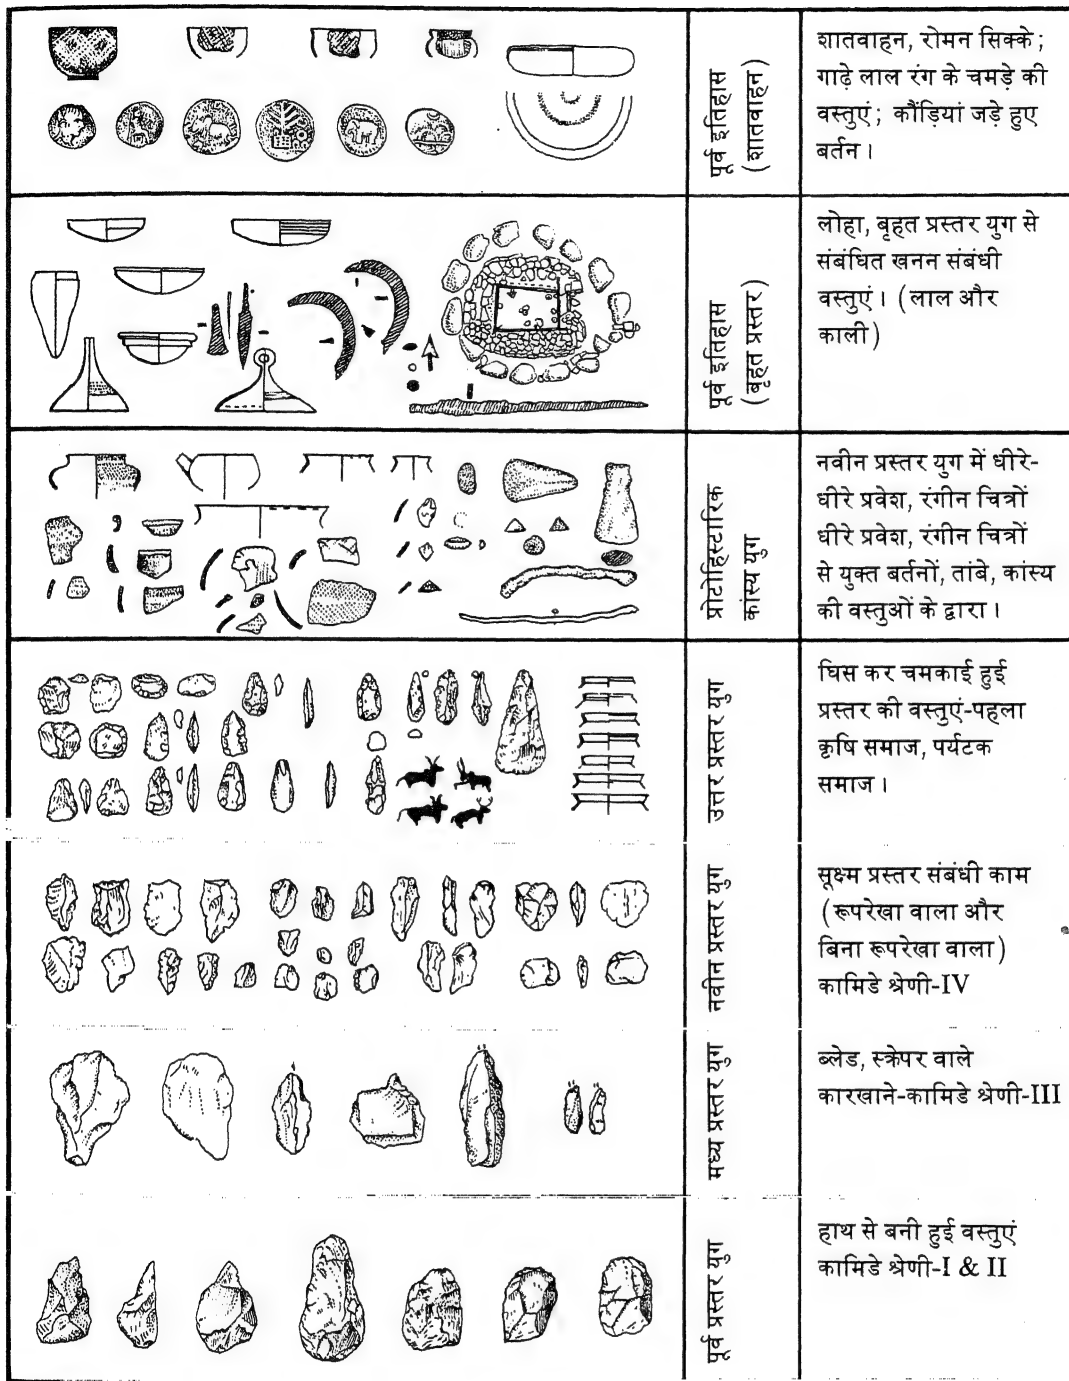 पूर्व इतिहास
(शातवाहन)
शातवाहन, रोमन सिक्के;
गाढ़े लाल रंग के चमड़े की
वस्तुएं; कौंड़ियां जड़े हुए
बर्तन।
पूर्व इतिहास
(बृहत प्रस्तर)
लोहा, बृहत प्रस्तर युग से
संबंधित खनन संबंधी
वस्तुएं। (लाल और
काली)
प्रोटोहिस्टारिक
कांस्य युग
नवीन प्रस्तर युग में धीरे-
धीरे प्रवेश, रंगीन चित्रों
धीरे प्रवेश, रंगीन चित्रों
से युक्त बर्तनों, तांबे, कांस्य
की वस्तुओं के द्वारा।
उत्तर प्रस्तर युग
घिस कर चमकाई हुई
प्रस्तर की वस्तुएं-पहला
कृषि समाज, पर्यटक
समाज।
नवीन प्रस्तर युग
सूक्ष्म प्रस्तर संबंधी काम
(रूपरेखा वाला और
बिना रूपरेखा वाला)
कामिडे श्रेणी-IV
मध्य प्रस्तर युग
ब्लेड, स्क्रेपर वाले
कारखाने-कामिडे श्रेणी-III
पूर्व प्रस्तर युग
हाथ से बनी हुई वस्तुएं
कामिडे श्रेणी-I & II